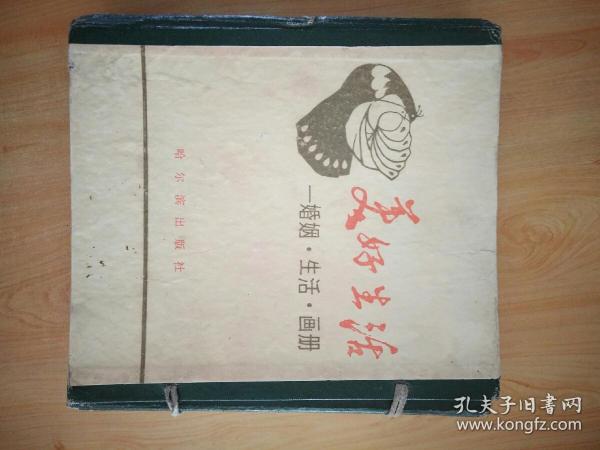 美好生活
—婚姻·生活·画册
哈尔滨出版社
孔夫子旧书网
www.kongfz.com